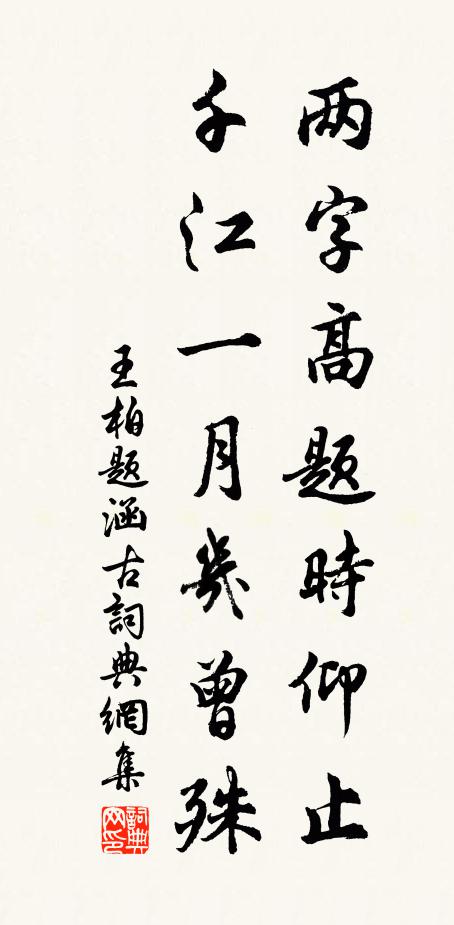 两字高题時仰止
千江一月幾曾殊
王柏题涵古詞典網集
詞典網印